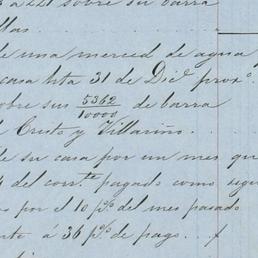 a 221 sobre su barra
llas.
de una merced de agua y
casa hta 31 de Dice. proxo.
obre sus 5362/10000 de barra
l Crusto y Villariño.
de su casa por un mes que
del corrte. pagado como sigue
s por el 10 p%. del mes pasado
nto á 36 ps. de pago... f